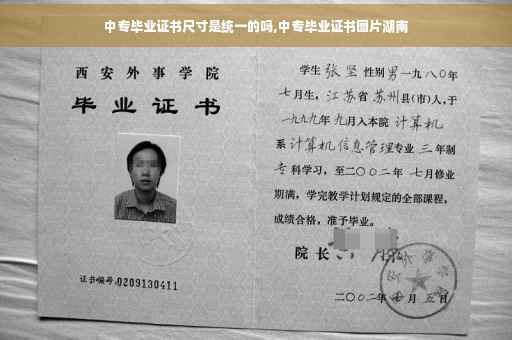 中专毕业证书尺寸是统一的吗,中专毕业证书图片湖南
西安外事学院
毕业证书
证书编号:0209130411
学生 张坚 性别 男 一九八〇年
七月生, 江苏省 苏州县(市)人,于
一九九九年 九月入本院 计算机
系 计算机信息管理专业 三 年制
专 科学习, 至二〇〇二年 七月修业
期满, 学完教学计划规定的全部课程,
成绩合格, 准予毕业。
院长
二〇〇二年 月 五日